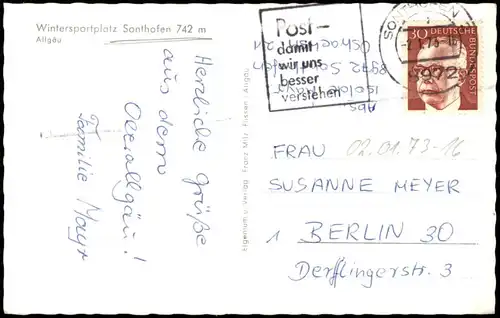 Wintersportplatz Sonthofen 742 m
Allgäu
Herzliche Grüße
aus dem
Oberallgäu!
Familie Mayr
Eigentum u. Verlag Franz Milz Füssen / Allgäu
Post –
damit
wir uns
besser
verstehen
SONTHOFEN
8972
30 DEUTSCHE
BUNDESPOST
Abs.
Isolde Mayr
8972 Sonthofen
FRAU 02.01.73-16
SUSANNE MEYER
1 BERLIN 30
Derfflingerstr. 3